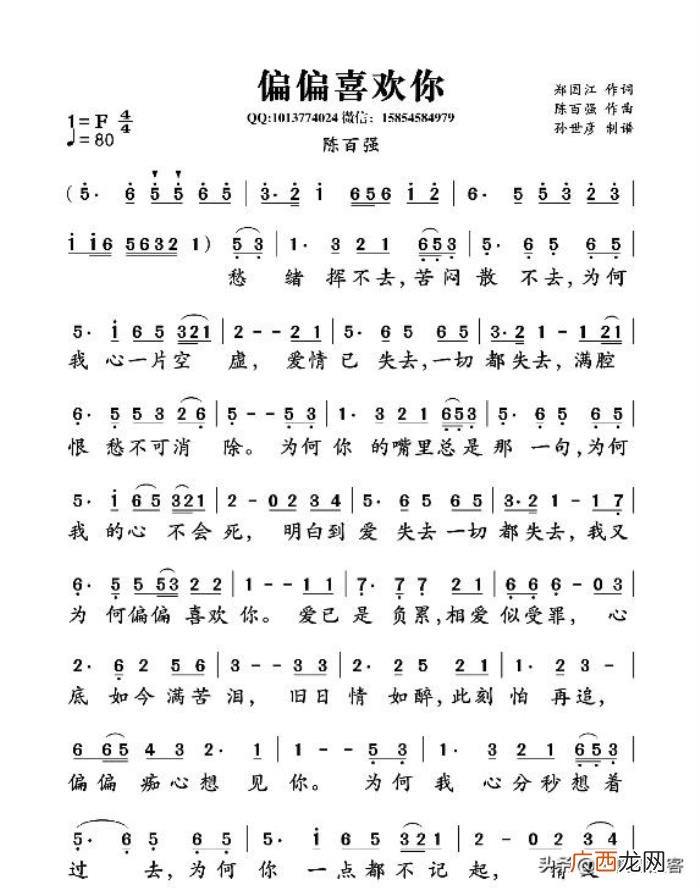 偏偏喜欢你
QQ:1013774024 微信: 15854584979
陈百强
郑国江 作词
陈百强 作曲
孙世彦 制谱
1=F 4/4
♩=80
(5· 6 5 5 6 5 | 3· 2 1 1656 12 | 6· 5 5323
1 16 5632 1) 53 | 1· 321 653 | 5· 65 65
愁 绪 挥不去,苦闷 散 不去,为何
5· 165 3321 | 2--21 | 5· 65 65 | 3·21 - 121
我 心一片空 虚, 爱情已 失去,一切 都失去,满腔
6· 553 226 | 5--53 | 1· 321 653 | 5· 65 65
恨 愁不可消 除。为何你 的嘴里总是那 一句,为何
5· 165 3321 | 2-0234 | 5· 65 65 | 3·21 - 17
我 的心 不会死, 明白到爱 失去一切 都失去,我又
6· 5553 22 | 1--11 | 7· 77 21 | 666 - 03
为 何偏偏 喜欢你。爱已是 负累,相爱 似受罪, 心
2· 62 56 | 3--33 | 2· 25 21 | 1· 55 5
底 如今满苦泪, 旧日情 如醉,此刻 怕 再追,
6 65 43 2· 1 | 1--53 | 1· 321 653
偏偏 痴心想 见你。 为何我 心分秒想着
5· 65 65 | 5· 165 3321 | 2-0234
过 去,为何你 一点都不记起,
广西龙网